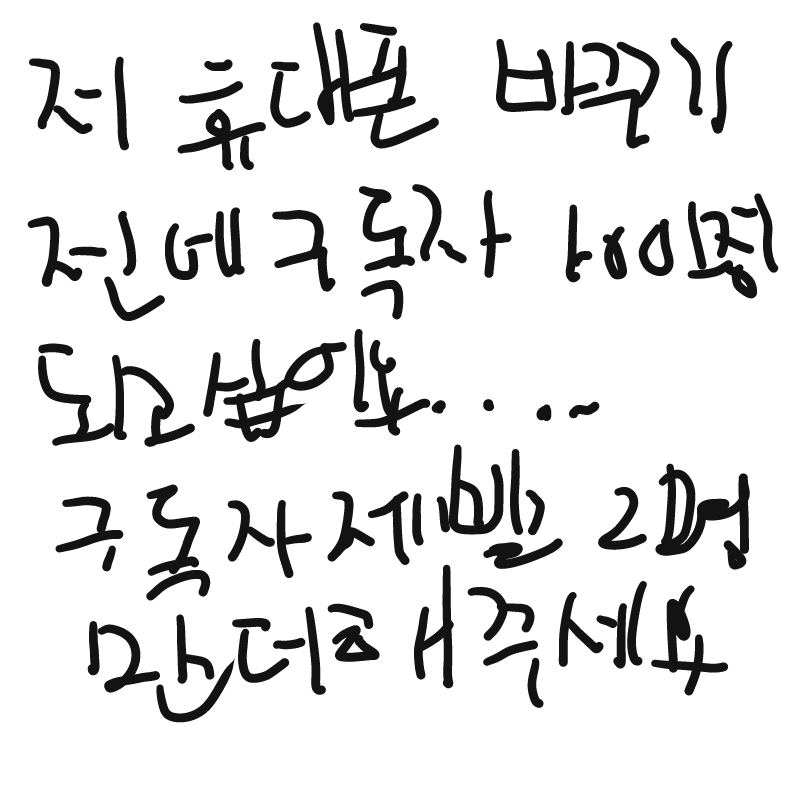 저 휴대폰 바꾸기
전에 구독자 100명
되고 싶어요. . . .~
구독자 제빨 2명
만 더 해 주세요